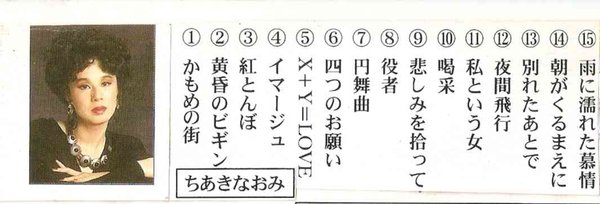 ①かもめの街
②黄昏のビギン
③紅とんぼ
④イマージュ
⑤X+Y=LOVE
⑥四つのお願い
⑦円舞曲
⑧役者
⑨悲しみを拾って
⑩喝采
⑪私という女
⑫夜間飛行
⑬別れたあとで
⑭朝がくるまえに
⑮雨に濡れた慕情
ちあきなおみ